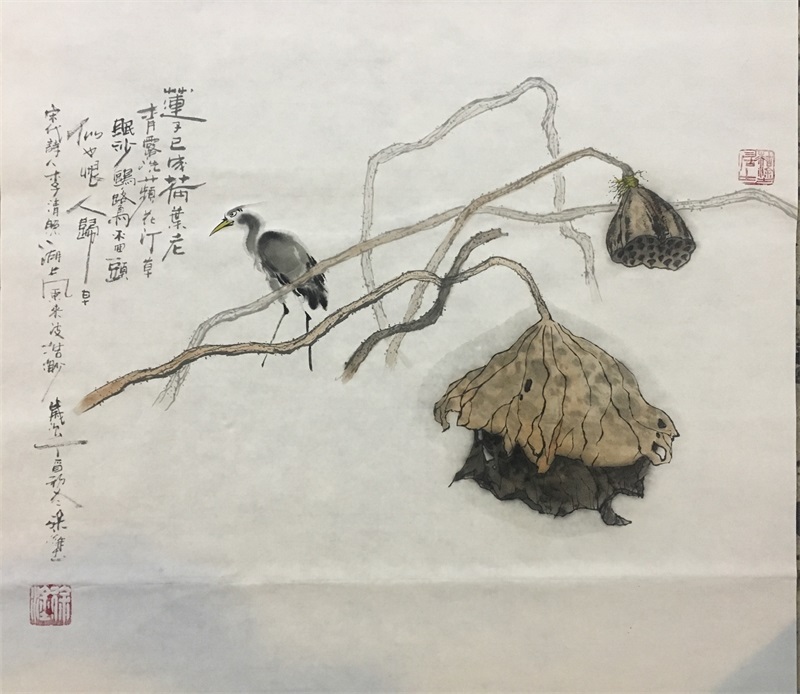 蓮子已成荷葉老
青露洗蘋花汀草
眠沙鷗鷺不回頭
似也恨人歸早
宋代詩人李清照湖上風來波浩渺 歲次丁酉初冬